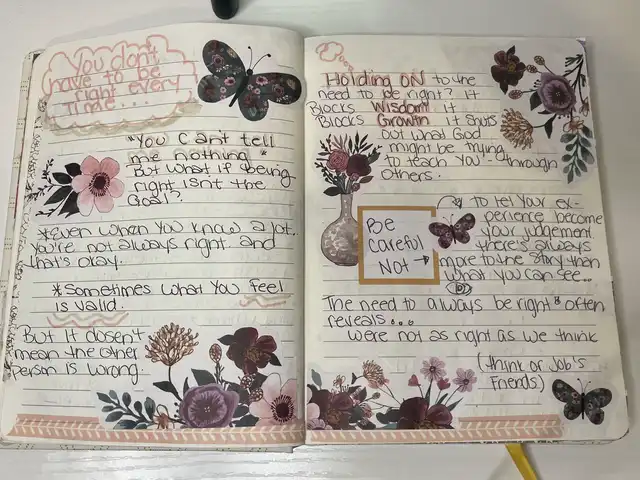 You don't
have to be
right every
time...
"You can't tell
me nothing"
But what if being
right isn't the
Goal?
*Even when you know a lot.
You're not always right and
that's okay.
*Sometimes what you feel
is valid.
But it doesn't
mean the other
person is wrong.
Holding ON to the
need to be right? it
Blocks Wisdom it
Blocks Growth it shuts
out what God
might be trying
to teach you through
others.
Be
careful
Not →
to let your ex-
perience become
your judgement
there's always
more to the story than
what you can see...
The need to always be right often
reveals...
we're not as right as we think
(think or Job's
Friends)